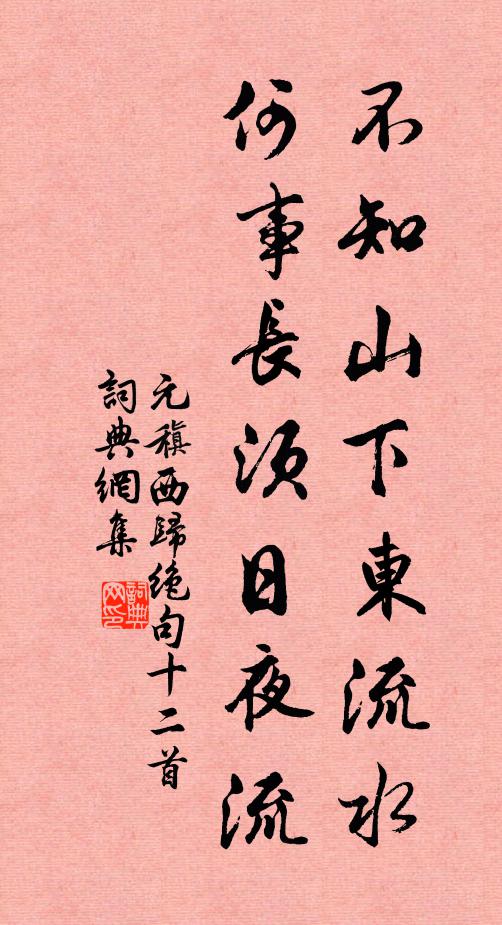 不知山下東流水
何事長須日夜流
元稹西歸絶句十二首
詞典網集
詞典
网印